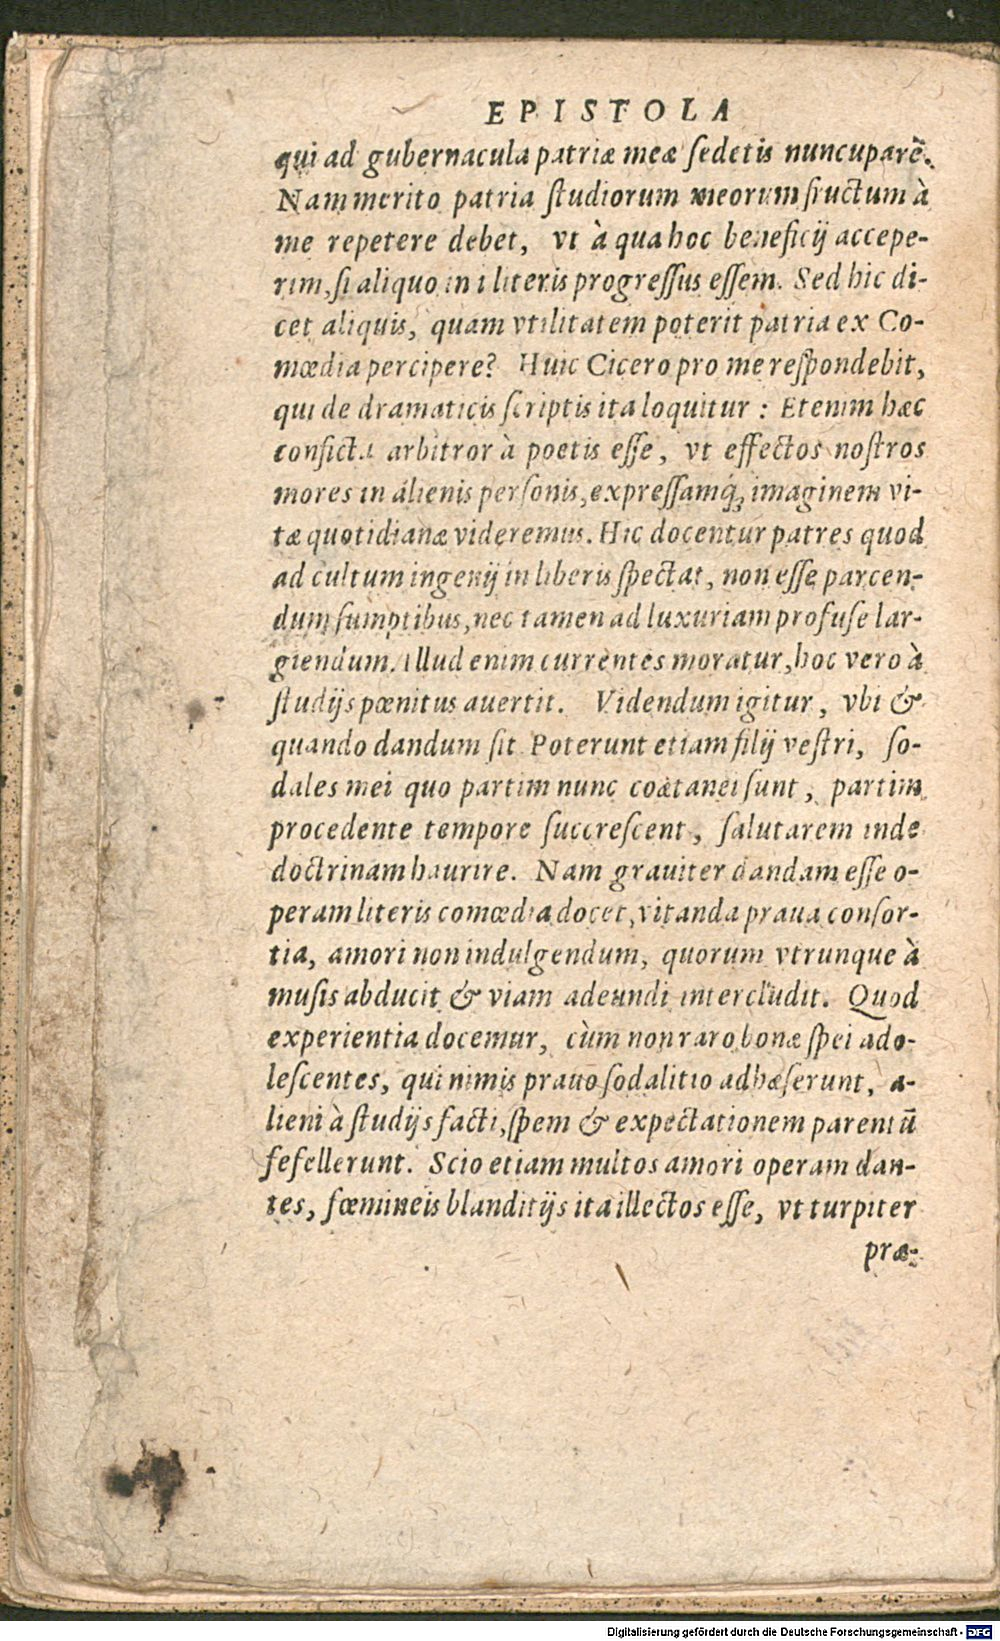 EPISTOLA
qui ad gubernacula patriæ meæ ſedetis nuncuparẽ.
Nam merito patria ſtudiorum meorum fructum à
me repetere debet, vt à qua hoc beneficij accepe-
rim, ſi aliquo in literis progreſſus eſſem. Sed hic di-
cet aliquis, quam vtilitatem poterit patria ex Co-
mœdia percipere? Huic Cicero pro me reſpondebit,
qui de dramaticis ſcriptis ita loquitur : Etenim hæc
conficta arbitror à poetis eſſe, vt effectos noſtros
mores in alienis perſonis, expreſſamq́; imaginem vi-
tæ quotidianæ videremus. Hic docentur patres quod
ad cultum ingenij in liberis ſpectat, non eſſe parcen-
dum ſumptibus, nec tamen ad luxuriam profuſe lar-
giendum. Illud enim currentes moratur, hoc vero à
ſtudijs pœnitus auertit. Videndum igitur, vbi &
quando dandum ſit. Poterunt etiam filij veſtri, ſo-
dales mei quo partim nunc coætanei ſunt, partim
procedente tempore ſuccreſcent, ſalutarem inde
doctrinam haurire. Nam grauiter dandam eſſe o-
peram literis comœdia docet, vitanda praua conſor-
tia, amori non indulgendum, quorum vtrunque à
muſis abducit & viam adeundi intercludit. Quod
experientia docemur, cùm non raro bonæ ſpei ado-
leſcentes, qui nimis prauo ſodalitio adhæſerunt, a-
lieni à ſtudijs facti, ſpem & expectationem parentũ
fefellerunt. Scio etiam multos amori operam dan-
tes, fœmineis blanditijs ita illectos eſſe, vt turpiter
præ-
Digitalisierung gefördert durch die Deutsche Forschungsgemeinschaft - DFG